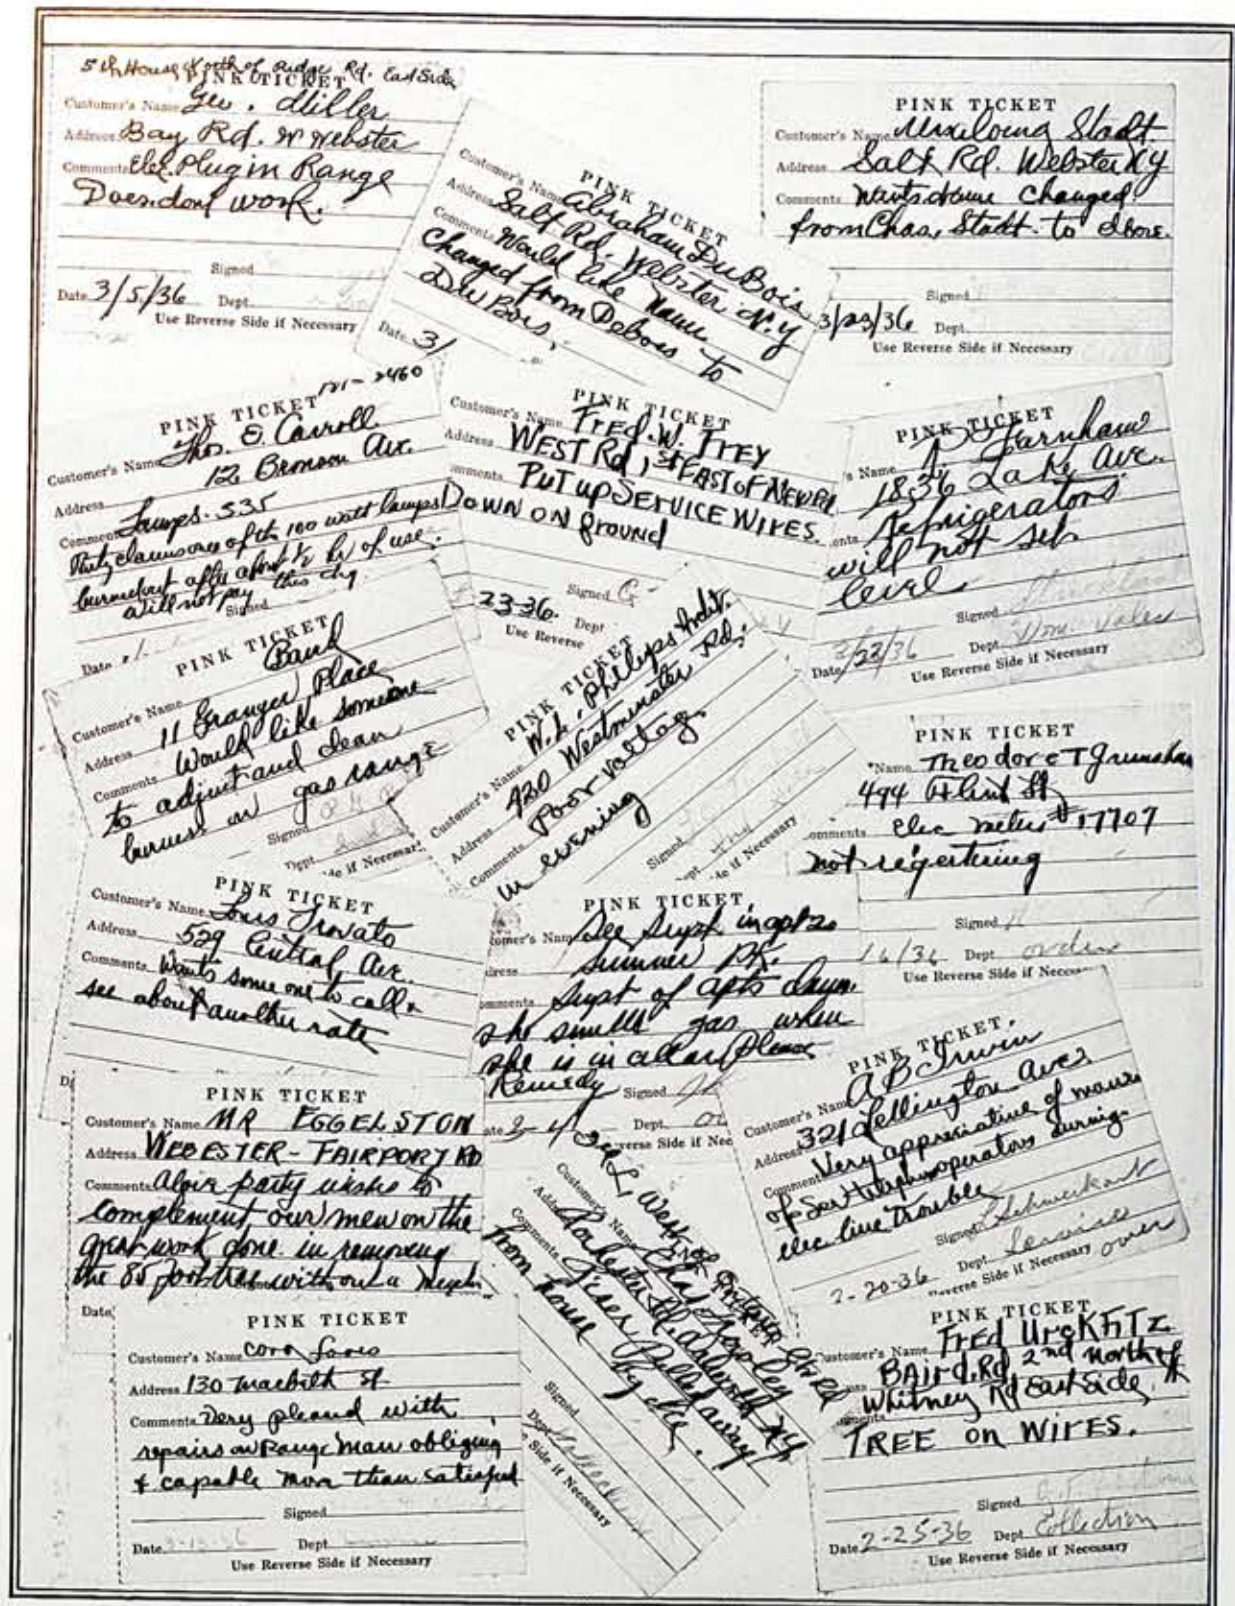 5th House North of Ridge Rd. East Side
PINK TICKET
Customer's Name Geo. Miller
Address Bay Rd. W Webster
Comments Elec. Plug in Range
Does dont work.
Signed
Date 3/5/36 Dept.
Use Reverse Side if Necessary
PINK TICKET
Customer's Name Abraham DuBois
Address Salt Rd. Webster N.Y
Comments Would like Name
Changed from Debois to
DuBois.
Date 3/
PINK TICKET
Customer's Name Stadt
Address Salt Rd. Webster NY
Comments Wants Name Changed
from Chas. Stadt. to above.
Signed
3/23/36 Dept.
Use Reverse Side if Necessary
PINK TICKET
Customer's Name Thos. O. Carroll
Address 12 Bronson Ave.
Comments Lamps. 535
Party claims one of the 100 watt lamps
burned out after about 1/2 hr of use.
Will not pay this chg.
Signed
Date
PINK TICKET
Customer's Name Fred. W. Frey
Address WEST Rd, 1st EAST OF NEW Rd
omments PUT up SERVICE WIRES.
DOWN ON ground
Signed G
23-36. Dept
Use Reverse
PINK TICKET
's Name Farnham
1836 Lake Ave.
ents Refrigerators
will not set
level
Signed
Date 2/23/36 Dept Dom. Sales
Use Reverse Side if Necessary
PINK TICKET
Customer's Name Baud
Address 11 Granger Place
Comments Would like someone
to adjust and clean
burners on gas range
Signed
Dept
de if Necessar
PINK TICKET
Customer's Name W. L. Philipps
Address 420 Westminster Rd.
Comments Poor Voltag.
in evening
Signed
ept
de if Necessary
PINK TICKET
Name Theodore T
494 Flint St
omments Elec meter # 17707
not regertering
Signed
16/36 Dept order
Use Reverse Side if Neces
PINK TICKET
Customer's Name Louis Trovato
Address 529 Central Ave.
Comments Wants some one to call &
see about another rate
D
PINK TICKET
tomer's Nam See Supt in apt 20
dress Sumner Pk.
omments Supt of apts claims
she smells gas when
she is in cellar Please
Remedy Signed
ate 3-4 Dept.
verse Side if Nec
PINK TICKET.
Customer's Name A B Irwin
Address 321 Wellington Ave.
Comments Very appreciative of manner
of Ser + telephone operators during
elec line trouble
Signed
2-20-36 Dept. Service
everse Side if Necessary over
PINK TICKET
Customer's Name MR EGGELSTON
Address WEBESTER - FAIRPORT RD
Comments above party wishes to
complement our men on the
great work done in removing
the 85 foot tree without a
Date
Customer's Name Chas
Address
Comments Riser Pulled away
from house by
Signed
Dept
e Side if Necessary
PINK TICKET
Customer's Name Cora
Address 130 Macbeth St.
Comments Very pleasd with
repairs on Range Man obliging
& capable more than satisfied
Signed
Date Dept
Use Reverse Side if Necessary
PINK TICKET
ustomer's Name Fred UrcKFiTz
BAird. Rd 2nd North of
Whitney Rd East Side.
mments
TREE on WIrES.
Signed
Date 2-25-36 Dept Collection
Use Reverse Side if Necessary